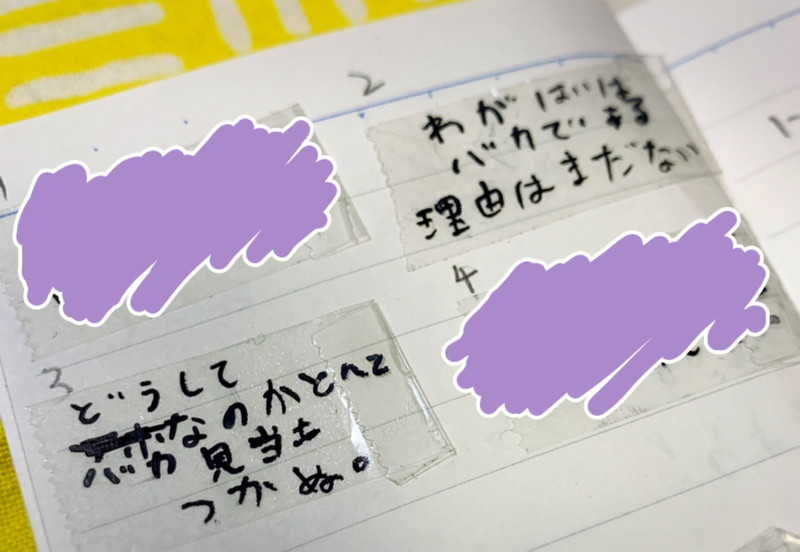 2
わがはいは
バカである
理由はまだない
4
3
どうして
なのかとんと
バカ 見当も
つかぬ。